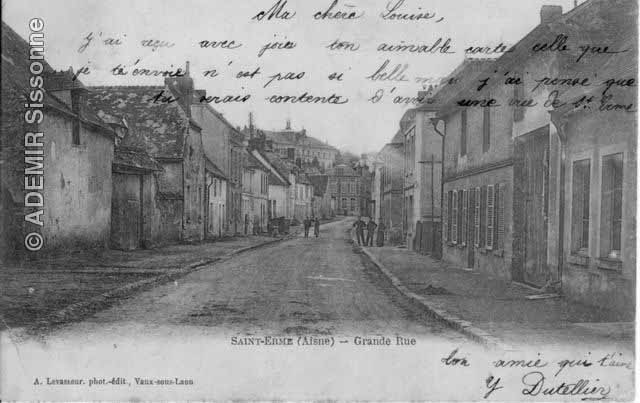 Ma chère Louise,
j'ai reçu avec joie ton aimable carte celle que
je t'envoie n'est pas si belle mais j'ai pensé que
tu serais contente d'avoir une vue de St Erme
© ADEMIR Sissonne
SAINT-ERME (Aisne) — Grande Rue
A. Levasseur, phot.-édit., Vaux-sous-Laon
ton amie qui t'aime
Y Dutellier